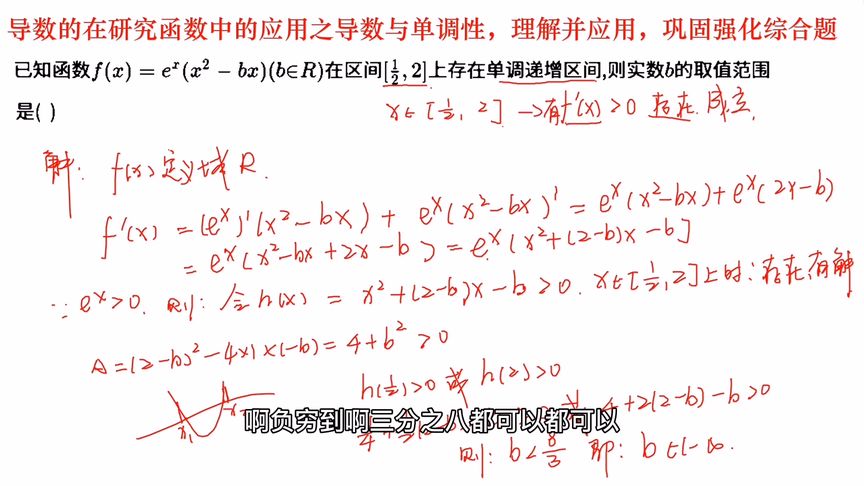 导数的在研究函数中的应用之导数与单调性，理解并应用，巩固强化综合题
已知函数f(x) = eˣ(x² − bx)(b∈R)在区间[1/2, 2]上存在单调递增区间,则实数b的取值范围
是( )
x∈[1/2, 2] → 有f'(x) > 0 存在 成立.
解: f(x) 定义域 R.
f'(x) = (eˣ)'(x² − bx) + eˣ(x² − bx)' = eˣ(x² − bx) + eˣ(2x − b)
= eˣ(x² − bx + 2x − b) = eˣ[x² + (2−b)x − b]
∵ eˣ > 0. 则: 令 h(x) = x² + (2−b)x − b > 0. x∈[1/2, 2]上时: 存在有解
Δ = (2−b)² − 4×1×(−b) = 4 + b² > 0
h(1/2) > 0 或 h(2) > 0
x₁
4 + 2(2−b) − b > 0
啊负穷到啊三分之八都可以都可以
则: b < 8/3 即: b∈(−∞.